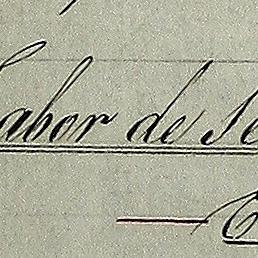 Labor de Se